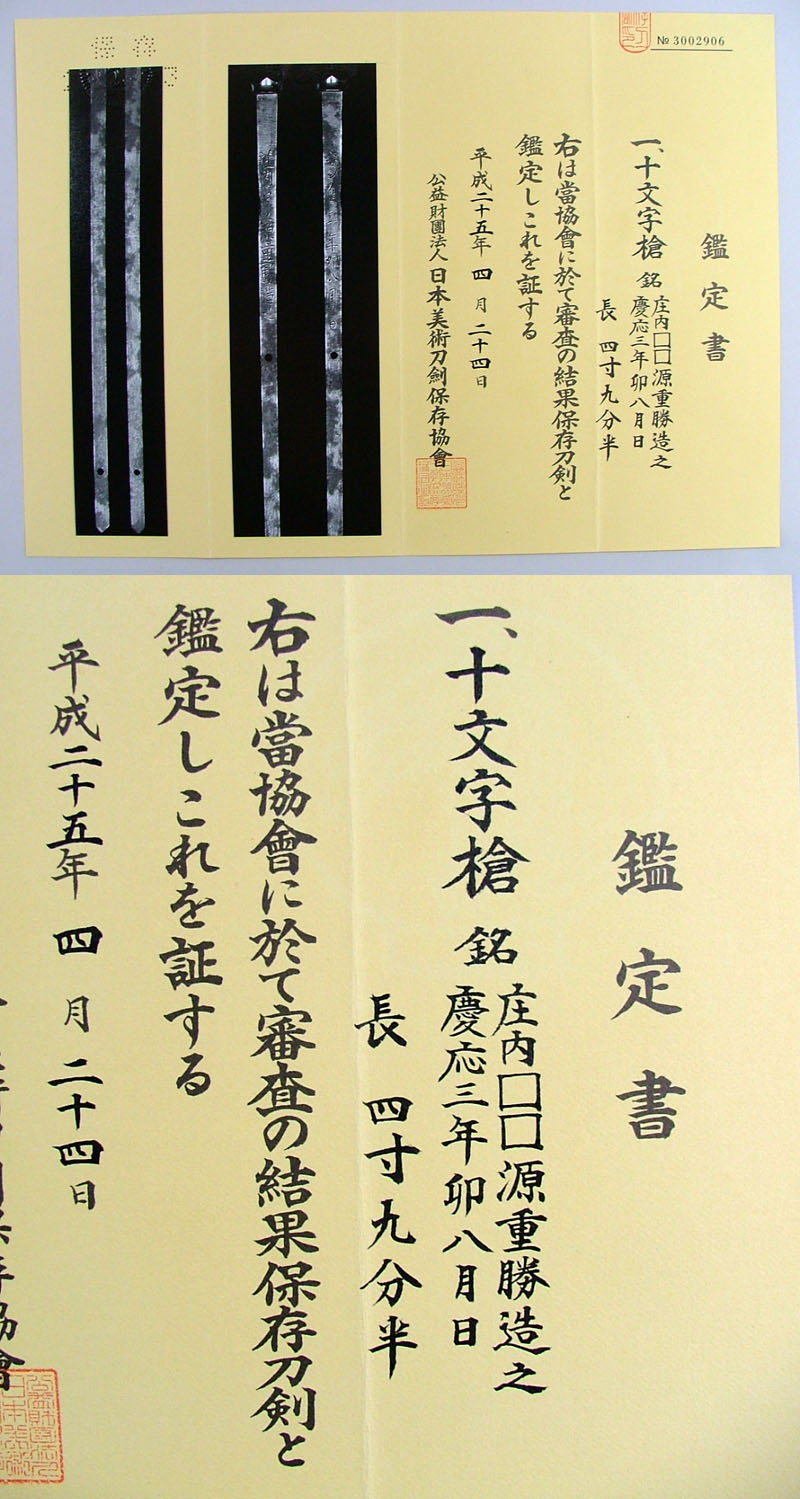 № 3002906
鑑定書
一、十文字槍 銘 庄内□□源重勝造之
慶応三年卯八月日
長 四寸九分半
右は當協會に於て審査の結果保存刀剣と
鑑定しこれを証する
平成二十五年 四 月 二十四日
公益財團法人 日本美術刀劍保存協會
保存
鑑定書
一、十文字槍 銘 庄内□□源重勝造之
慶応三年卯八月日
長 四寸九分半
右は當協會に於て審査の結果保存刀剣と
鑑定しこれを証する
平成二十五年 四 月 二十四日